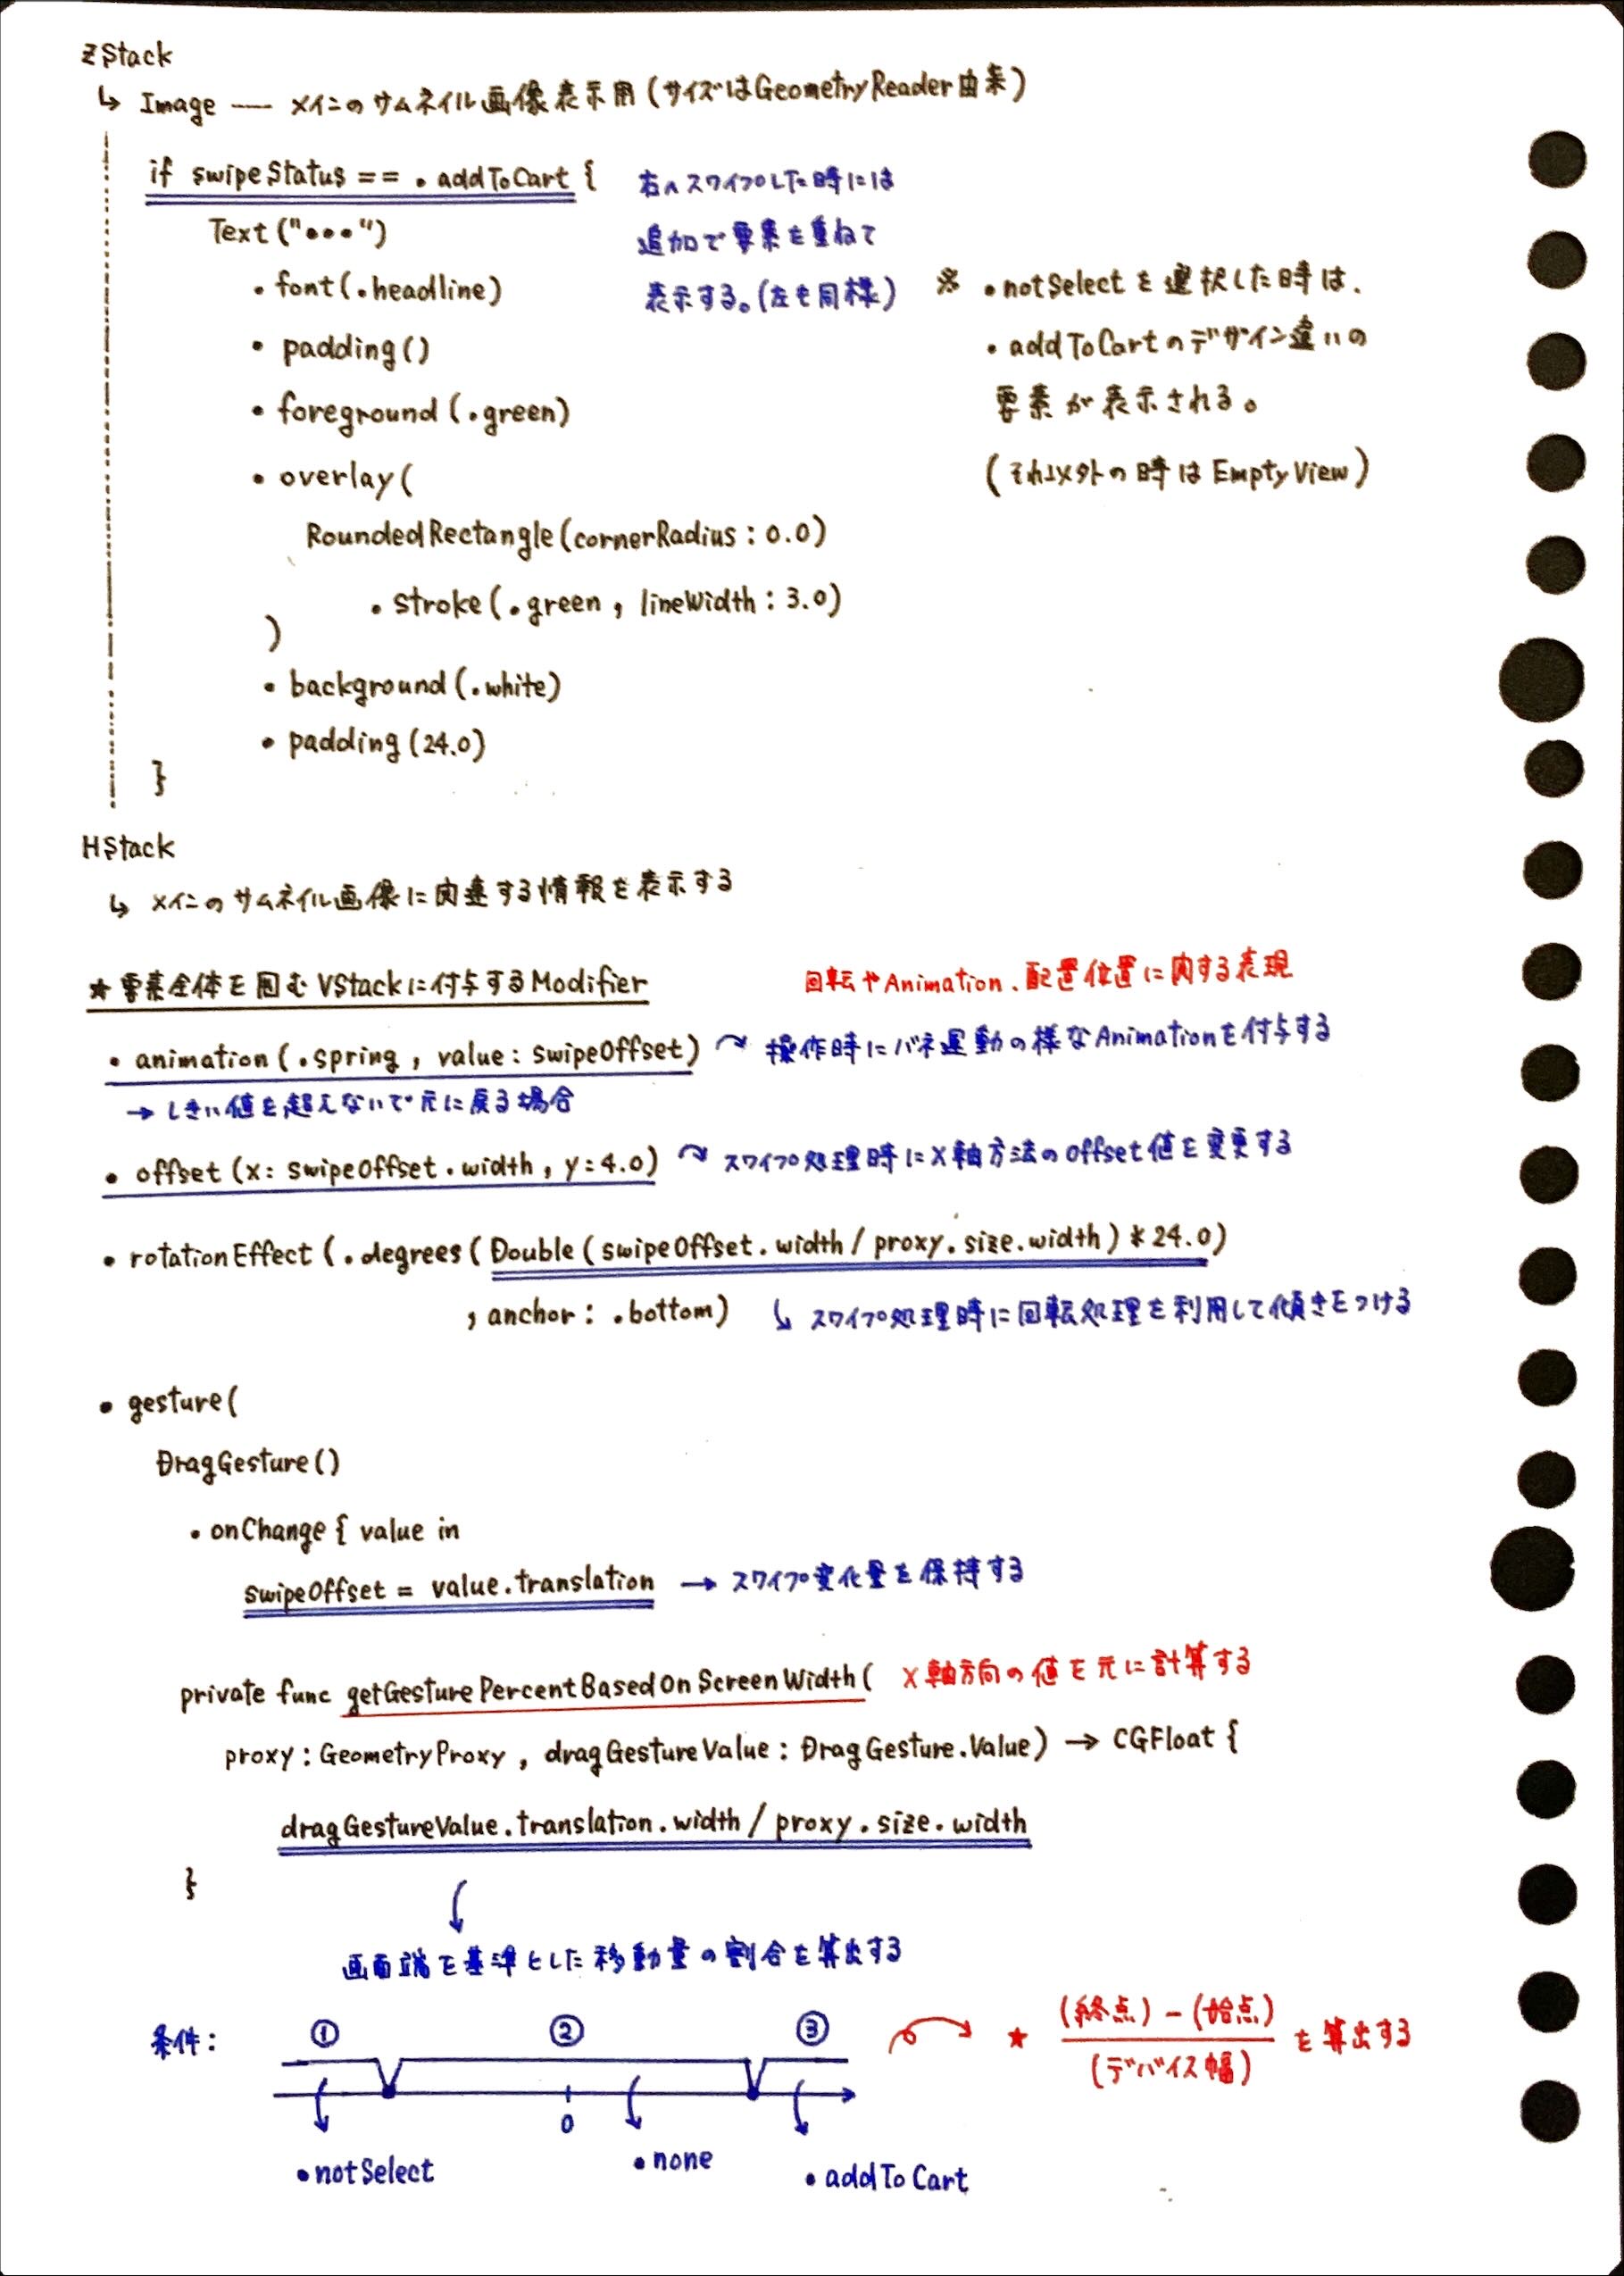 ZStack
↳ Image — メインのサムネイル画像表示用(サイズはGeometryReader由来)
if swipeStatus == .addToCart {
右へスワイプした時には
追加で要素を重ねて
表示する。(左も同様)
Text("•••")
.font(.headline)
.padding()
.foreground(.green)
.overlay(
RoundedRectangle(cornerRadius: 0.0)
.stroke(.green, lineWidth: 3.0)
)
.background(.white)
.padding(24.0)
}
※ .notSelectを選択した時は、
.addToCartのデザイン違いの
要素が表示される。
(それ以外の時はEmptyView)
HStack
↳ メインのサムネイル画像に関連する情報を表示する
★要素全体を囲むVStackに付与するModifier
回転やAnimation、配置位置に関する表現
.animation(.spring, value: swipeOffset) 操作時にバネ運動の様なAnimationを付与する
→ しきい値を超えないで元に戻る場合
.offset(x: swipeOffset.width, y: 4.0) スワイプ処理時にX軸方法のoffset値を変更する
.rotationEffect(.degrees(Double(swipeOffset.width / proxy.size.width) * 24.0)
, anchor: .bottom) スワイプ処理時に回転処理を利用して傾きをつける
.gesture(
DragGesture()
.onChange { value in
swipeOffset = value.translation → スワイプ変化量を保持する
private func getGesturePercentBasedOnScreenWidth( X軸方向の値を元に計算する
proxy: GeometryProxy, dragGestureValue: DragGesture.Value) → CGFloat {
dragGestureValue.translation.width / proxy.size.width
}
画面端を基準とした移動量の割合を算出する
条件:
① ② ③
0
.notSelect
.none
.addToCart
★ (終点) - (始点)
(デバイス幅)
を算出する